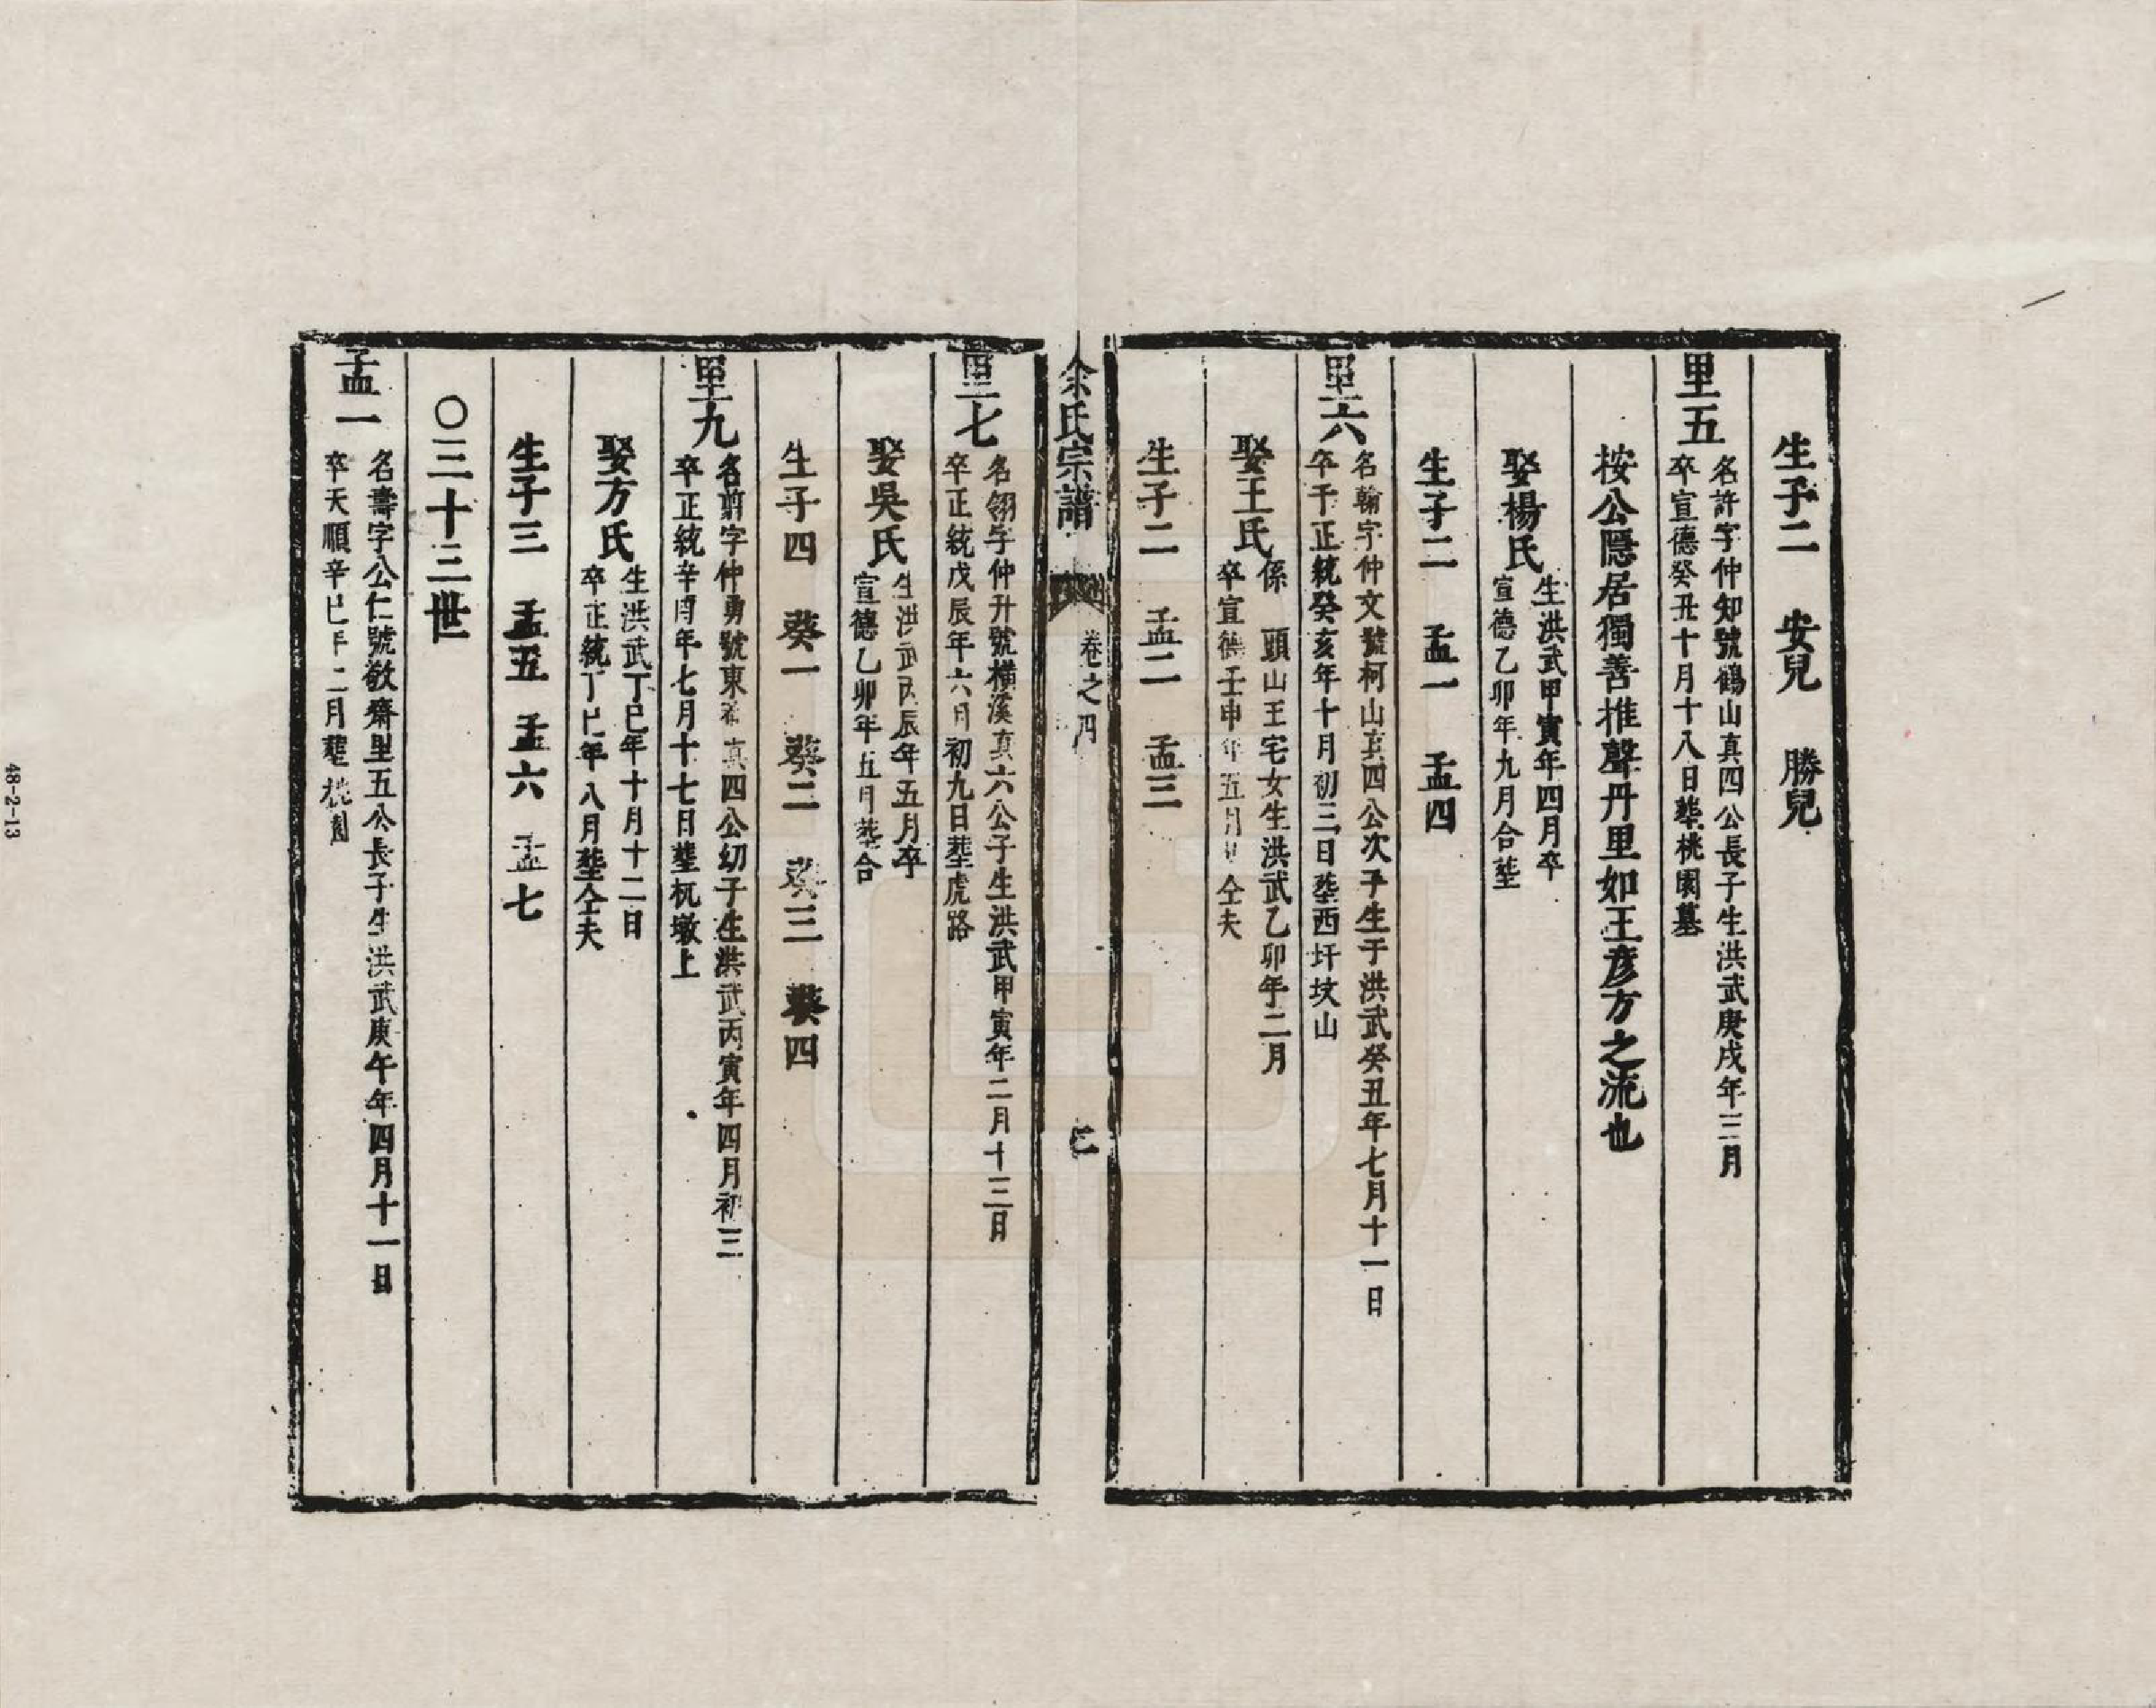 生子二　安兒　勝兒
里五
名許字仲知號鶴山真四公長子生洪武庚戌年三月
卒宣德癸丑十月十八日塟桃園墓
按公隱居獨善推聲丹里如王彦方之流也
娶楊氏
生洪武甲寅年四月卒
宣德乙卯年九月合塟
生子二　孟一　孟四
里六
名翰字仲文號柯山真四公次子生于洪武癸丑年七月十一日
卒于正統癸亥年十月初三日塟西圩坟山
娶王氏
係　頭山王宅女生洪武乙卯年二月
卒宣德壬申年五月　仝夫
生子二　孟二　孟三
余氏宗譜
卷之四
里七
名翎字仲升號横溪真六公子生洪武甲寅年二月十三日
卒正統戊辰年六月初九日塟虎路
娶吳氏
生洪武丙辰年五月卒
宣德乙卯年五月塟合
生子四　葵一　葵二　葵三　葵四
里九
名剪字仲勇號東　真四公幼子生洪武丙寅年四月初三
卒正統辛酉年七月十七日塟杬墩上
娶方氏
生洪武丁巳年十月十二日
卒正統丁巳年八月塟仝夫
生子三　孟五　孟六　孟七
〇三十三世
孟一
名壽字公仁號敬齋里五公長子生洪武庚午年四月十一日
卒天順辛巳年二月塟桃園
48-2-13